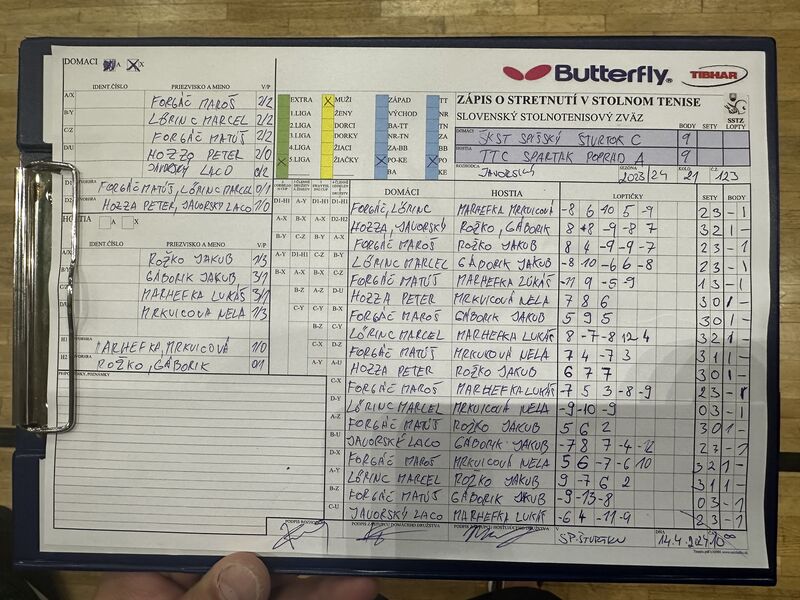 DOMACI A X
Butterfly. TIBHAR
IDENT.ČÍSLO PRIEZVISKO A MENO V/P
A/X FORGÁČ MAROŠ 2/2
B/Y LŐRINC MARCEL 2/2
C/Z FORGÁČ MATÚŠ 2/2
D/U HOZZO PETER 2/0
JAVORSKÝ LACO 0/2
D1 FORGÁČ MATÚŠ, LŐRINC MARCEL 0/1
D2 HOZZA PETER, JAVORSKÝ LACO 1/0
HOSTIA A X
IDENT.ČÍSLO PRIEZVISKO A MENO V/P
ROŽKO JAKUB 1/3
GÁBORIK JAKUB 3/1
MARHEFKA LUKÁŠ 3/1
MRKVICOVÁ NELA 1/3
H1 MARHEFKA, MRKVICOVÁ 1/0
H2 ROŽKO, GÁBORIK 0/1
EXTRA MUŽI ZÁPAD TT
1.LIGA ŽENY VÝCHOD NR
2.LIGA DORCI BA-TT TN
3.LIGA DORKY NR-TN ZA
4.LIGA ŽIACI ZA-BB BB
5.LIGA ŽIAČKY PO-KE PO
BA KE
ZÁPIS O STRETNUTÍ V STOLNOM TENISE
SLOVENSKÝ STOLNOTENISOVÝ ZVÄZ
SSTZ
BODY SETY LOPTY
DOMÁCI ŠKST SPIŠSKÝ ŠTVRTOK C 9
HOSTIA TTC SPARTAK POPRAD A 9
ROZHODCA JAVORSKÝ SEZÓNA 2023/24 KOLO 21 Č.Z. 123
DOMÁCI HOSTIA LOPTIČKY SETY BODY
FORGÁČ, LŐRINC MARHEFKA MRKVICOVÁ -8 6 10 5 -9 2 3 - 1
HOZZA, JAVORSKÝ ROŽKO, GÁBORIK 3 2 1 -
FORGÁČ MAROŠ ROŽKO JAKUB 8 4 -9 -9 -7 2 3 - 1
LŐRINC MARCEL GÁBORIK JAKUB 2 3 - 1
FORGÁČ MATÚŠ MARHEFKA LUKÁŠ -11 9 -5 -9 1 3 - 1
HOZZA PETER MRKVICOVÁ NELA 7 8 6 3 0 1 -
FORGÁČ MAROŠ GÁBORIK JAKUB 5 9 5 3 0 1 -
LŐRINC MARCEL MARHEFKA LUKÁŠ 8 -7 -8 12 4 3 2 1 -
FORGÁČ MATÚŠ MRKVICOVÁ NELA 7 4 -7 3 3 1 1 -
HOZZA PETER ROŽKO JAKUB 6 7 7 3 0 1 -
FORGÁČ MAROŠ MARHEFKA LUKÁŠ -7 5 3 -8 -9 2 3 - 1
LŐRINC MARCEL MRKVICOVÁ NELA -9 -10 -9 0 3 - 1
FORGÁČ MATÚŠ ROŽKO JAKUB 5 6 2 3 0 1 -
JAVORSKÝ LACO GÁBORIK JAKUB -7 8 7 -4 -12 2 3 - 1
FORGÁČ MAROŠ MRKVICOVÁ NELA 5 6 -7 -6 10 3 2 1 -
LŐRINC MARCEL ROŽKO JAKUB 9 -7 6 2 3 1 1 -
FORGÁČ MATÚŠ GÁBORIK JAKUB -9 -13 -8 0 3 - 1
JAVORSKÝ LACO MARHEFKA LUKÁŠ -6 4 -11 -9 2 3 - 1
PODPIS ZÁSTUPCU DOMÁCEHO DRUŽSTVA
V SP. ŠTVRTKU DŇA 14.4.2024